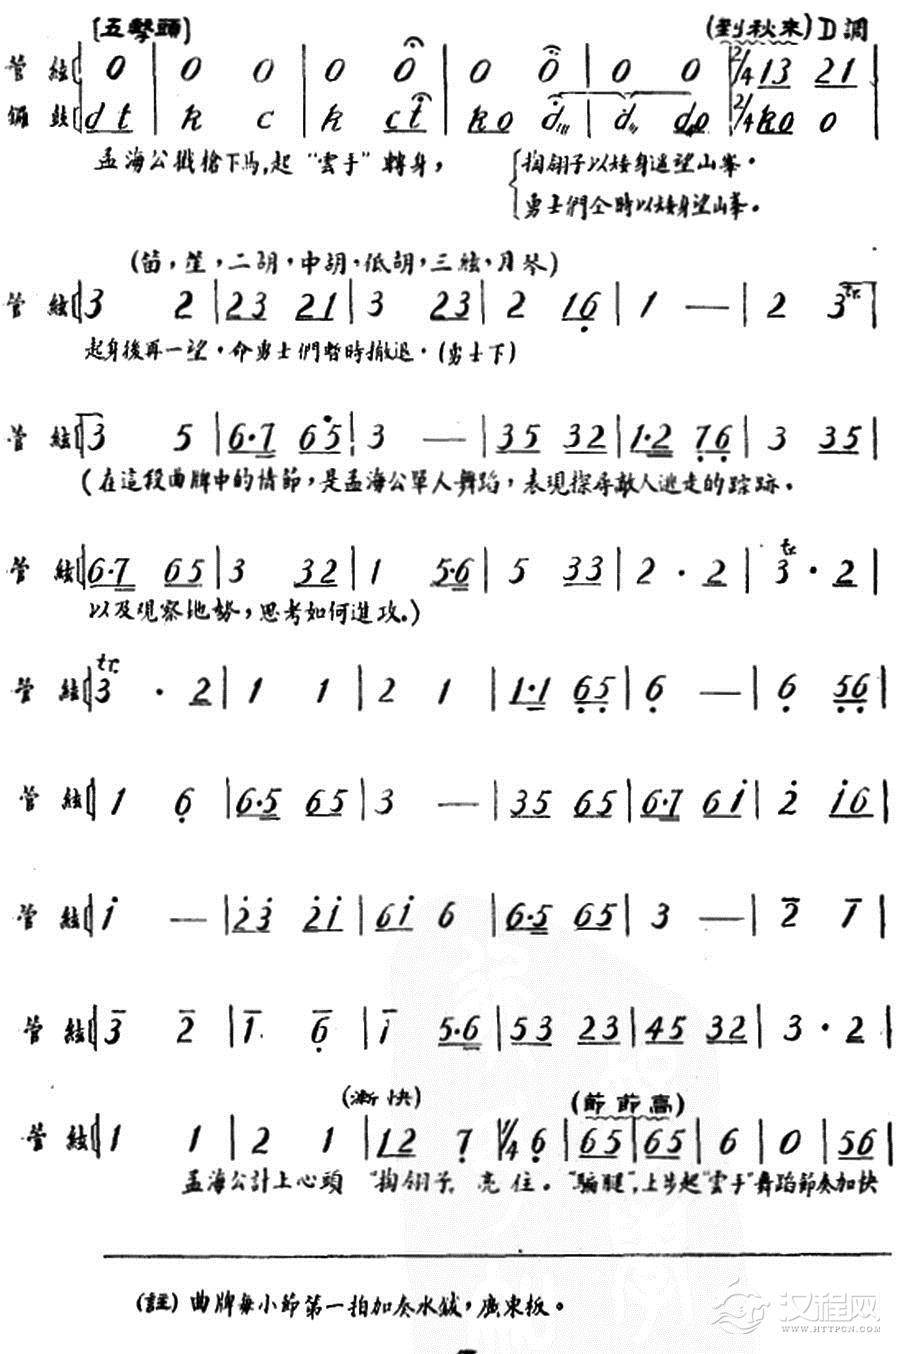 〔五擊頭〕 (到秋來) D調
管絃 0 | 0 0 | 0 0 | 0 0 | 0 0 | 2/4 13 21 |
鑼鼓 d t | k c | k ct | ko d | d do | 2/4 ko 0 |
孟海公戳槍下馬,起“雲手”轉身， 掏翎子以矮身遥望山峯。
勇士們仝時以矮身望山峯。
(笛，笙，二胡，中胡、低胡，三絃、月琴)
管絃 3 2 | 23 21 | 3 23 | 2 16 | 1 — | 2 3 tr. |
起身後再一望，命勇士們暫時撤退。(勇士下)
管絃 3 5 | 6·7 65 | 3 — | 35 32 | 1·2 76 | 3 35 |
(在這段曲牌中的情節，是孟海公單人舞蹈，表現探尋敵人逃走的踪跡。
tr
管絃 6·7 65 | 3 32 | 1 5·6 | 5 33 | 2 · 2 | 3 · 2 |
以及观察地勢，思考如何進攻。)
tr.
管絃 3 · 2 | 1 1 | 2 1 | 1·1 65 | 6 — | 6 56 |
管絃 1 6 | 6·5 65 | 3 — | 35 65 | 6·7 6i | 2 i6 |
管絃 i — | 23 2i | 6i 6 | 6·5 65 | 3 — | 2 1 |
管絃 3 2 | 1 6 | i 5·6 | 53 23 | 45 32 | 3 · 2 |
(漸快) (節節高)
管絃 1 1 | 2 1 | 12 7 | 1/4 6 | 65 | 65 | 6 | 0 | 56 |
孟海公計上心頭 “掏翎子,亮住。“騙腿”,上步起“雲手”舞蹈節奏加快
(註) 曲牌每小節第一拍加奏水鈸，廣東板。
汉程网
WWW.HTTPCN.COM